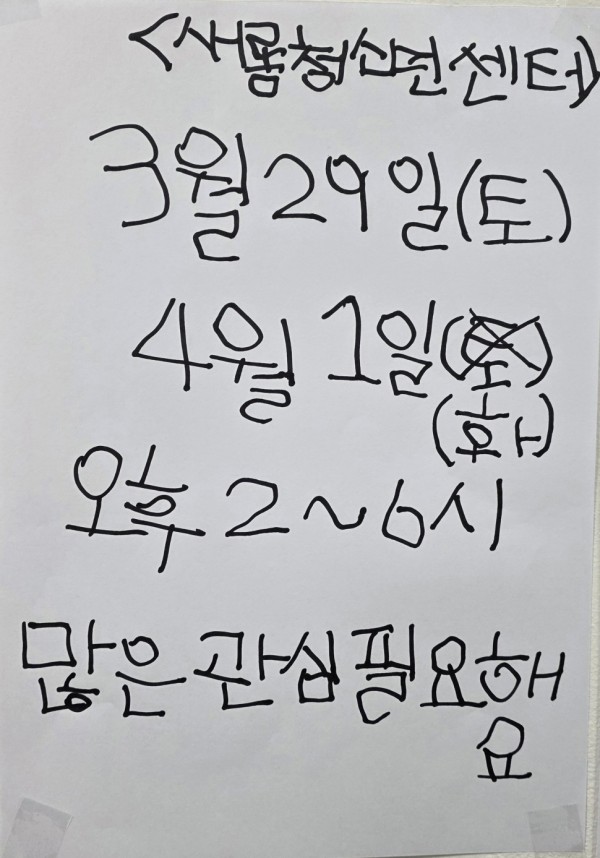 <새롬청신건센터>
3월 29일(토)
4월 1일
(화)
오후 2~6시
많은 관심 필요해
요